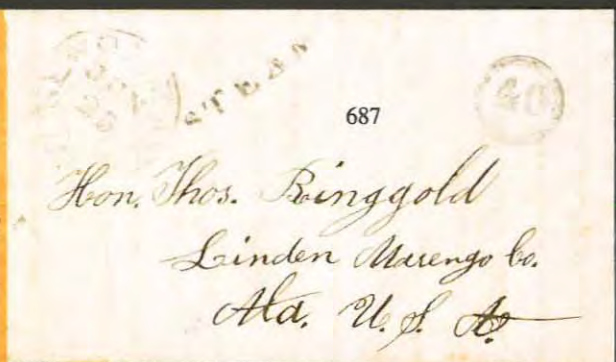 STEAM
40
687
Hon. Thos. Ringgold
Linden Marengo Co.
Ala. U. S. A.